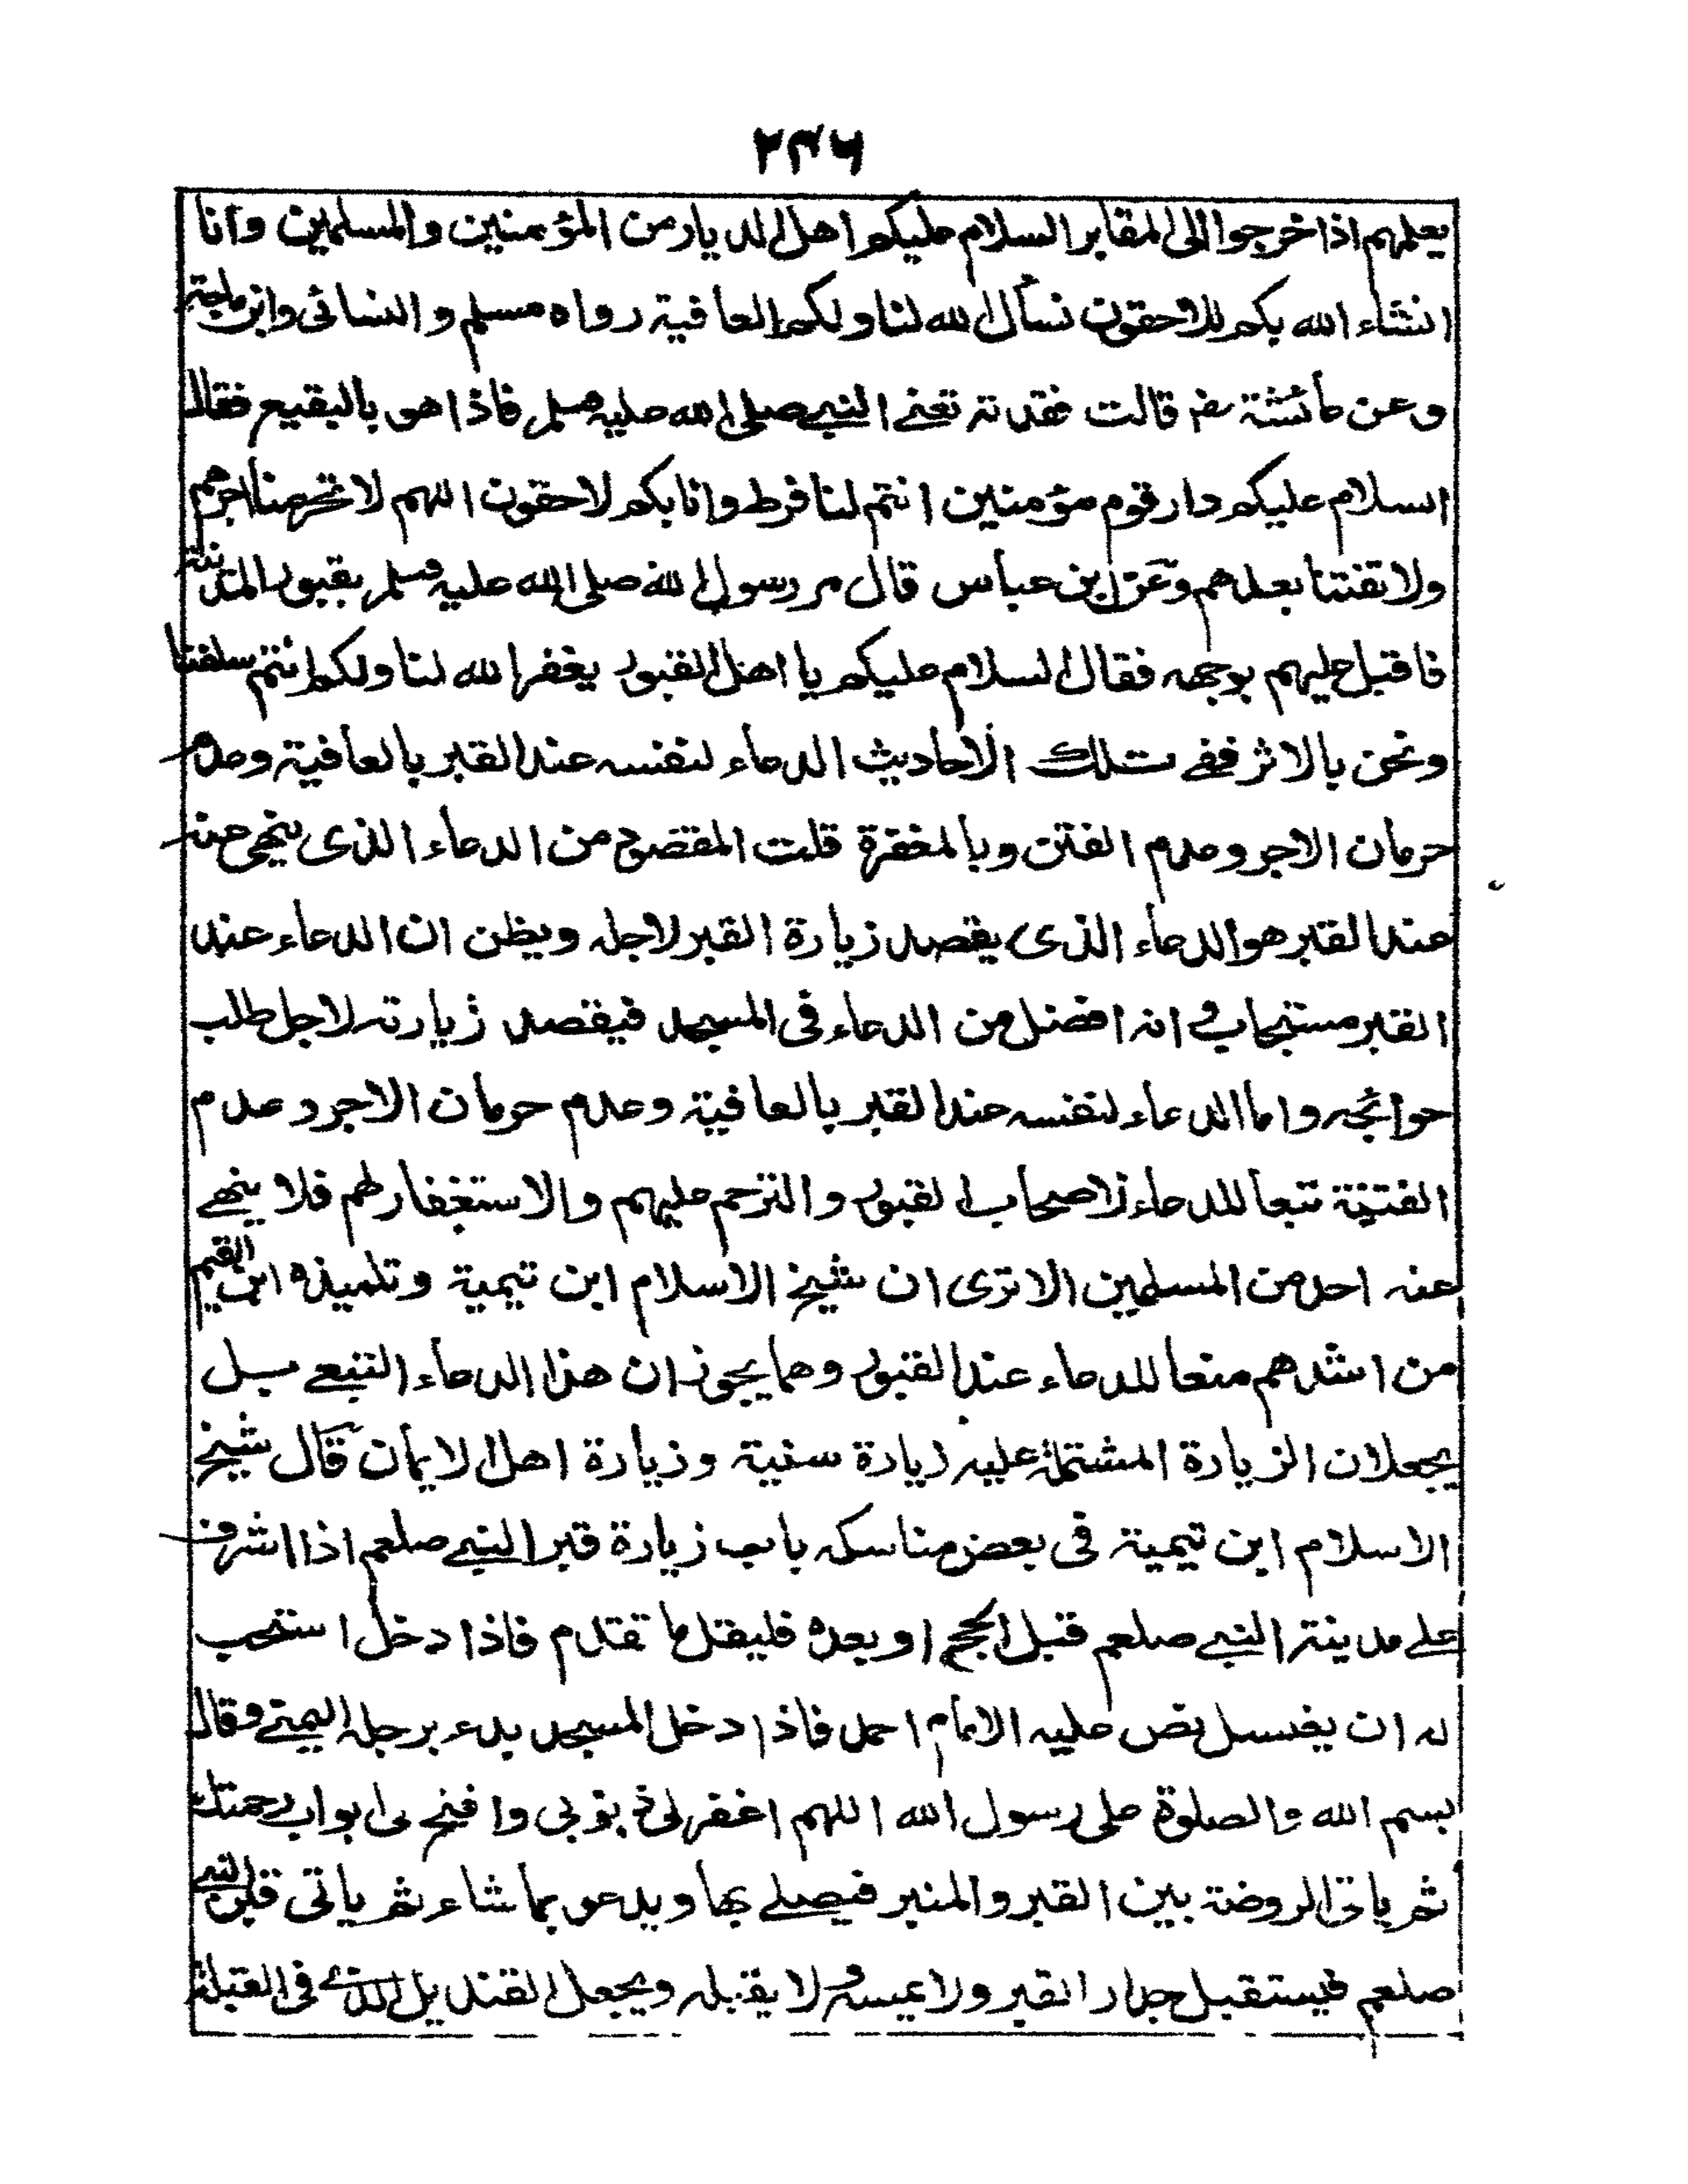 ٢٣٦
يعلمهم اذا خرجوا الى المقابر السلام عليكم اهل الديار من المؤمنين والمسلمين وانا
انشاء الله بكم للاحقون نسأل الله لنا ولكم العافية رواه مسلم والنسائى وابن ماجة
وعن عائشة رضـ قالت فقدته تعنے النبے صلى الله عليه وسلم فاذا هو بالبقيع فقال
السلام عليكم دار قوم مؤمنين انتم لنا فرط وانا بكم لاحقون اللهم لا تحرمنا اجرهم
ولا تفتنا بعدهم وعن ابن عباس قال مر رسول الله صلى الله عليه وسلم بقبور المدينة
فاقبل عليهم بوجهه فقال السلام عليكم يا اهل القبور يغفر الله لنا ولكم انتم سلفنا
ونحن بالاثر ففے تلك الاحاديث الدعاء لنفسه عند القبر بالعافية وعدم
حرمان الاجر وعدم الفتن وبالمغفرة قلت المقصود من الدعاء الذى ينهى عنه
عند القبر هو الدعاء الذى يقصد زيارة القبر لاجله ويظن ان الدعاء عند
القبر مستجاب و انه افضل من الدعاء فى المسجد فيقصد زيارته لاجل طلب
حوائجه واما الدعاء لنفسه عند القبر بالعافية وعدم حرمان الاجر و عدم
الفتنة تبعا للدعاء لاصحاب القبور والترحم عليهم والاستغفار لهم فلا ينهے
عنه احد من المسلمين الا ترى ان شيخ الاسلام ابن تيمية وتلميذه ابن القيم
من اشدهم منعا للدعاء عند القبور وهما يجوزان هذا الدعاء التبعے بل
يجعلان الزيارة المشتملة عليه زيارة سنية وزيارة اهل الايمان قال شيخ
الاسلام ابن تيمية فى بعض مناسكه باب زيارة قبر النبے صلعم اذا اشرف
علے مدينة النبے صلعم قبل الحج او بعده فليقل ما تقدم فاذا دخل استحب
له ان يغسل نص عليه الامام احمد فاذا دخل المسجد بدء برجله اليمنے وقال
بسم الله والصلوة على رسول الله اللهم اغفر لى ذنوبى وافتح لى ابواب رحمتك
ثم ياتى الروضة بين القبر والمنبر فيصلے بها ويدعو بما شاء ثم ياتى قبر النبے
صلعم فيستقبل جدار القبر ولا يمسه ولا يقبله ويجعل القنديل الذے فى القبلة